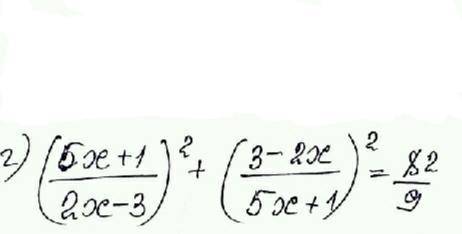 2) ((5x+1)/(2x-3))² + ((3-2x)/(5x+1))² = 82/9